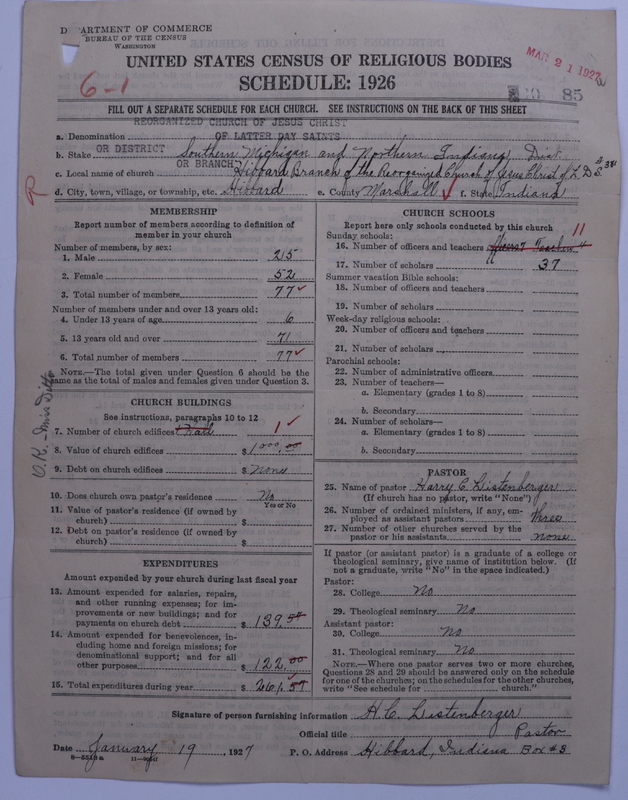 DEPARTMENT OF COMMERCE
BUREAU OF THE CENSUS
WASHINGTON
UNITED STATES CENSUS OF RELIGIOUS BODIES
MAR 21 1927
6-1
SCHEDULE: 1926
85
FILL OUT A SEPARATE SCHEDULE FOR EACH CHURCH. SEE INSTRUCTIONS ON THE BACK OF THIS SHEET
REORGANIZED CHURCH OF JESUS CHRIST
a. Denomination OF LATTER DAY SAINTS
b. Stake OR DISTRICT Southern Michigan and Northern Indiana Dist.
c. Local name of church OR BRANCH Hibbard Branch of the Reorganized Church of Jesus Christ of L.D.S.
d. City, town, village, or township, etc. Hibbard e. County Marshall f. State Indiana
MEMBERSHIP
Report number of members according to definition of
member in your church
Number of members, by sex:
1. Male 25
2. Female 52
3. Total number of members 77
Number of members under and over 13 years old:
4. Under 13 years of age 6
5. 13 years old and over 71
6. Total number of members 77
NOTE.—The total given under Question 6 should be the
same as the total of males and females given under Question 3.
O.K.
CHURCH BUILDINGS
See instructions, paragraphs 10 to 12
7. Number of church edifices 1
8. Value of church edifices $1000.00
9. Debt on church edifices $ None
10. Does church own pastor's residence No
Yes or No
11. Value of pastor's residence (if owned by
church) $
12. Debt on pastor's residence (if owned by
church) $
EXPENDITURES
Amount expended by your church during last fiscal year
13. Amount expended for salaries, repairs,
and other running expenses; for im-
provements or new buildings; and for
payments on church debt $139.57
14. Amount expended for benevolences, in-
cluding home and foreign missions; for
denominational support; and for all
other purposes $122.00
15. Total expenditures during year $261.57
CHURCH SCHOOLS
Report here only schools conducted by this church
Sunday schools: 11
16. Number of officers and teachers Officers 7 Teachers 4
17. Number of scholars 37
Summer vacation Bible schools:
18. Number of officers and teachers
19. Number of scholars
Week-day religious schools:
20. Number of officers and teachers
21. Number of scholars
Parochial schools:
22. Number of administrative officers
23. Number of teachers—
a. Elementary (grades 1 to 8)
b. Secondary
24. Number of scholars—
a. Elementary (grades 1 to 8)
b. Secondary
PASTOR
25. Name of pastor Harry C. Listenberger
(If church has no pastor, write "None")
26. Number of ordained ministers, if any, em-
ployed as assistant pastors three
27. Number of other churches served by the
pastor or his assistants none
If pastor (or assistant pastor) is a graduate of a college or
theological seminary, give name of institution below. (If
not a graduate, write "No" in the space indicated.)
Pastor:
28. College No
29. Theological seminary No
Assistant pastor:
30. College No
31. Theological seminary No
NOTE.—Where one pastor serves two or more churches,
Questions 28 and 29 should be answered only on the schedule
for one of the churches; on the schedules for the other churches,
write "See schedule for church."
Signature of person furnishing information H.C. Listenberger
Official title Pastor
Date January 19, 1927 P. O. Address Hibbard, Indiana Box #3